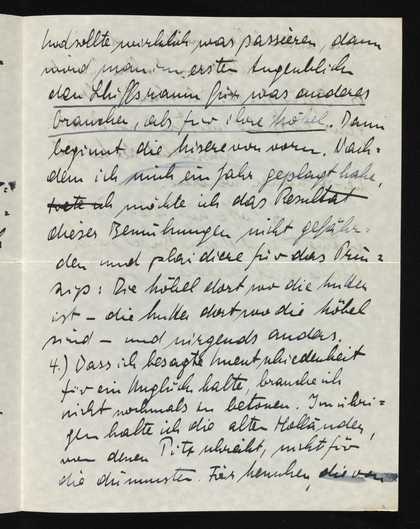 Und sollte wirklich was passieren, dann
wird man im ersten Augenblick
den Schiffsraum für was anderes
brauchen, als für ihre Möbel. Dann
beginnt die Misere von vorn. Nach-
dem ich mich ein Jahr geplagt habe,
möchte ich das Resultat
dieser Bemühungen nicht gefähr-
den und plaidiere für das Prin-
zip: Die Möbel dort wo die Mutter
ist – die Mutter dort wo die Möbel
sind – und nirgends anders.
4.) Dass ich besagte Unentschiedenheit
für ein Unglück halte, brauche ich
nicht nochmals zu betonen. Im übri-
gen halte ich die alten Holländer,
von denen schreibt, nicht für
die dümmsten. Für Menschen, die von